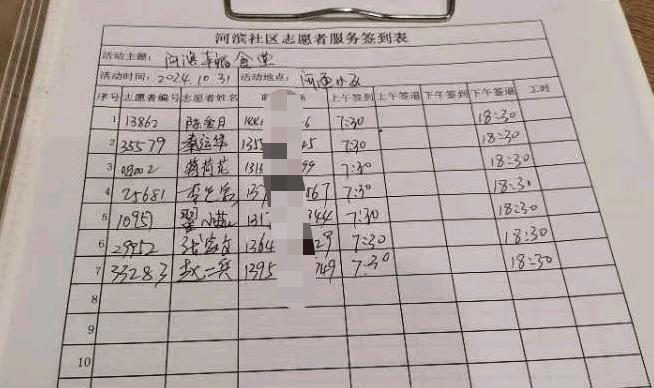 河滨社区志愿者服务签到表
活动主题: 河滨幸福食堂
活动时间: 2024.10.31 活动地点: 河
序号 志愿者编号 志愿者姓名 上午签到 上午签退 下午签到 下午签退 工时
1 13862 陈 月 7:30 18:30
2 35579 秦 7:30 18:30
3 08002 蒋荷花 7:30 18:30
4 25681 李 567 7:30 18:30
5 10951 翠 344 7:30 18:30
6 29952 张 1364 29 7:30 18:30
7 33283 赵一兵 1395 749 7:30 18:30
8
9
10